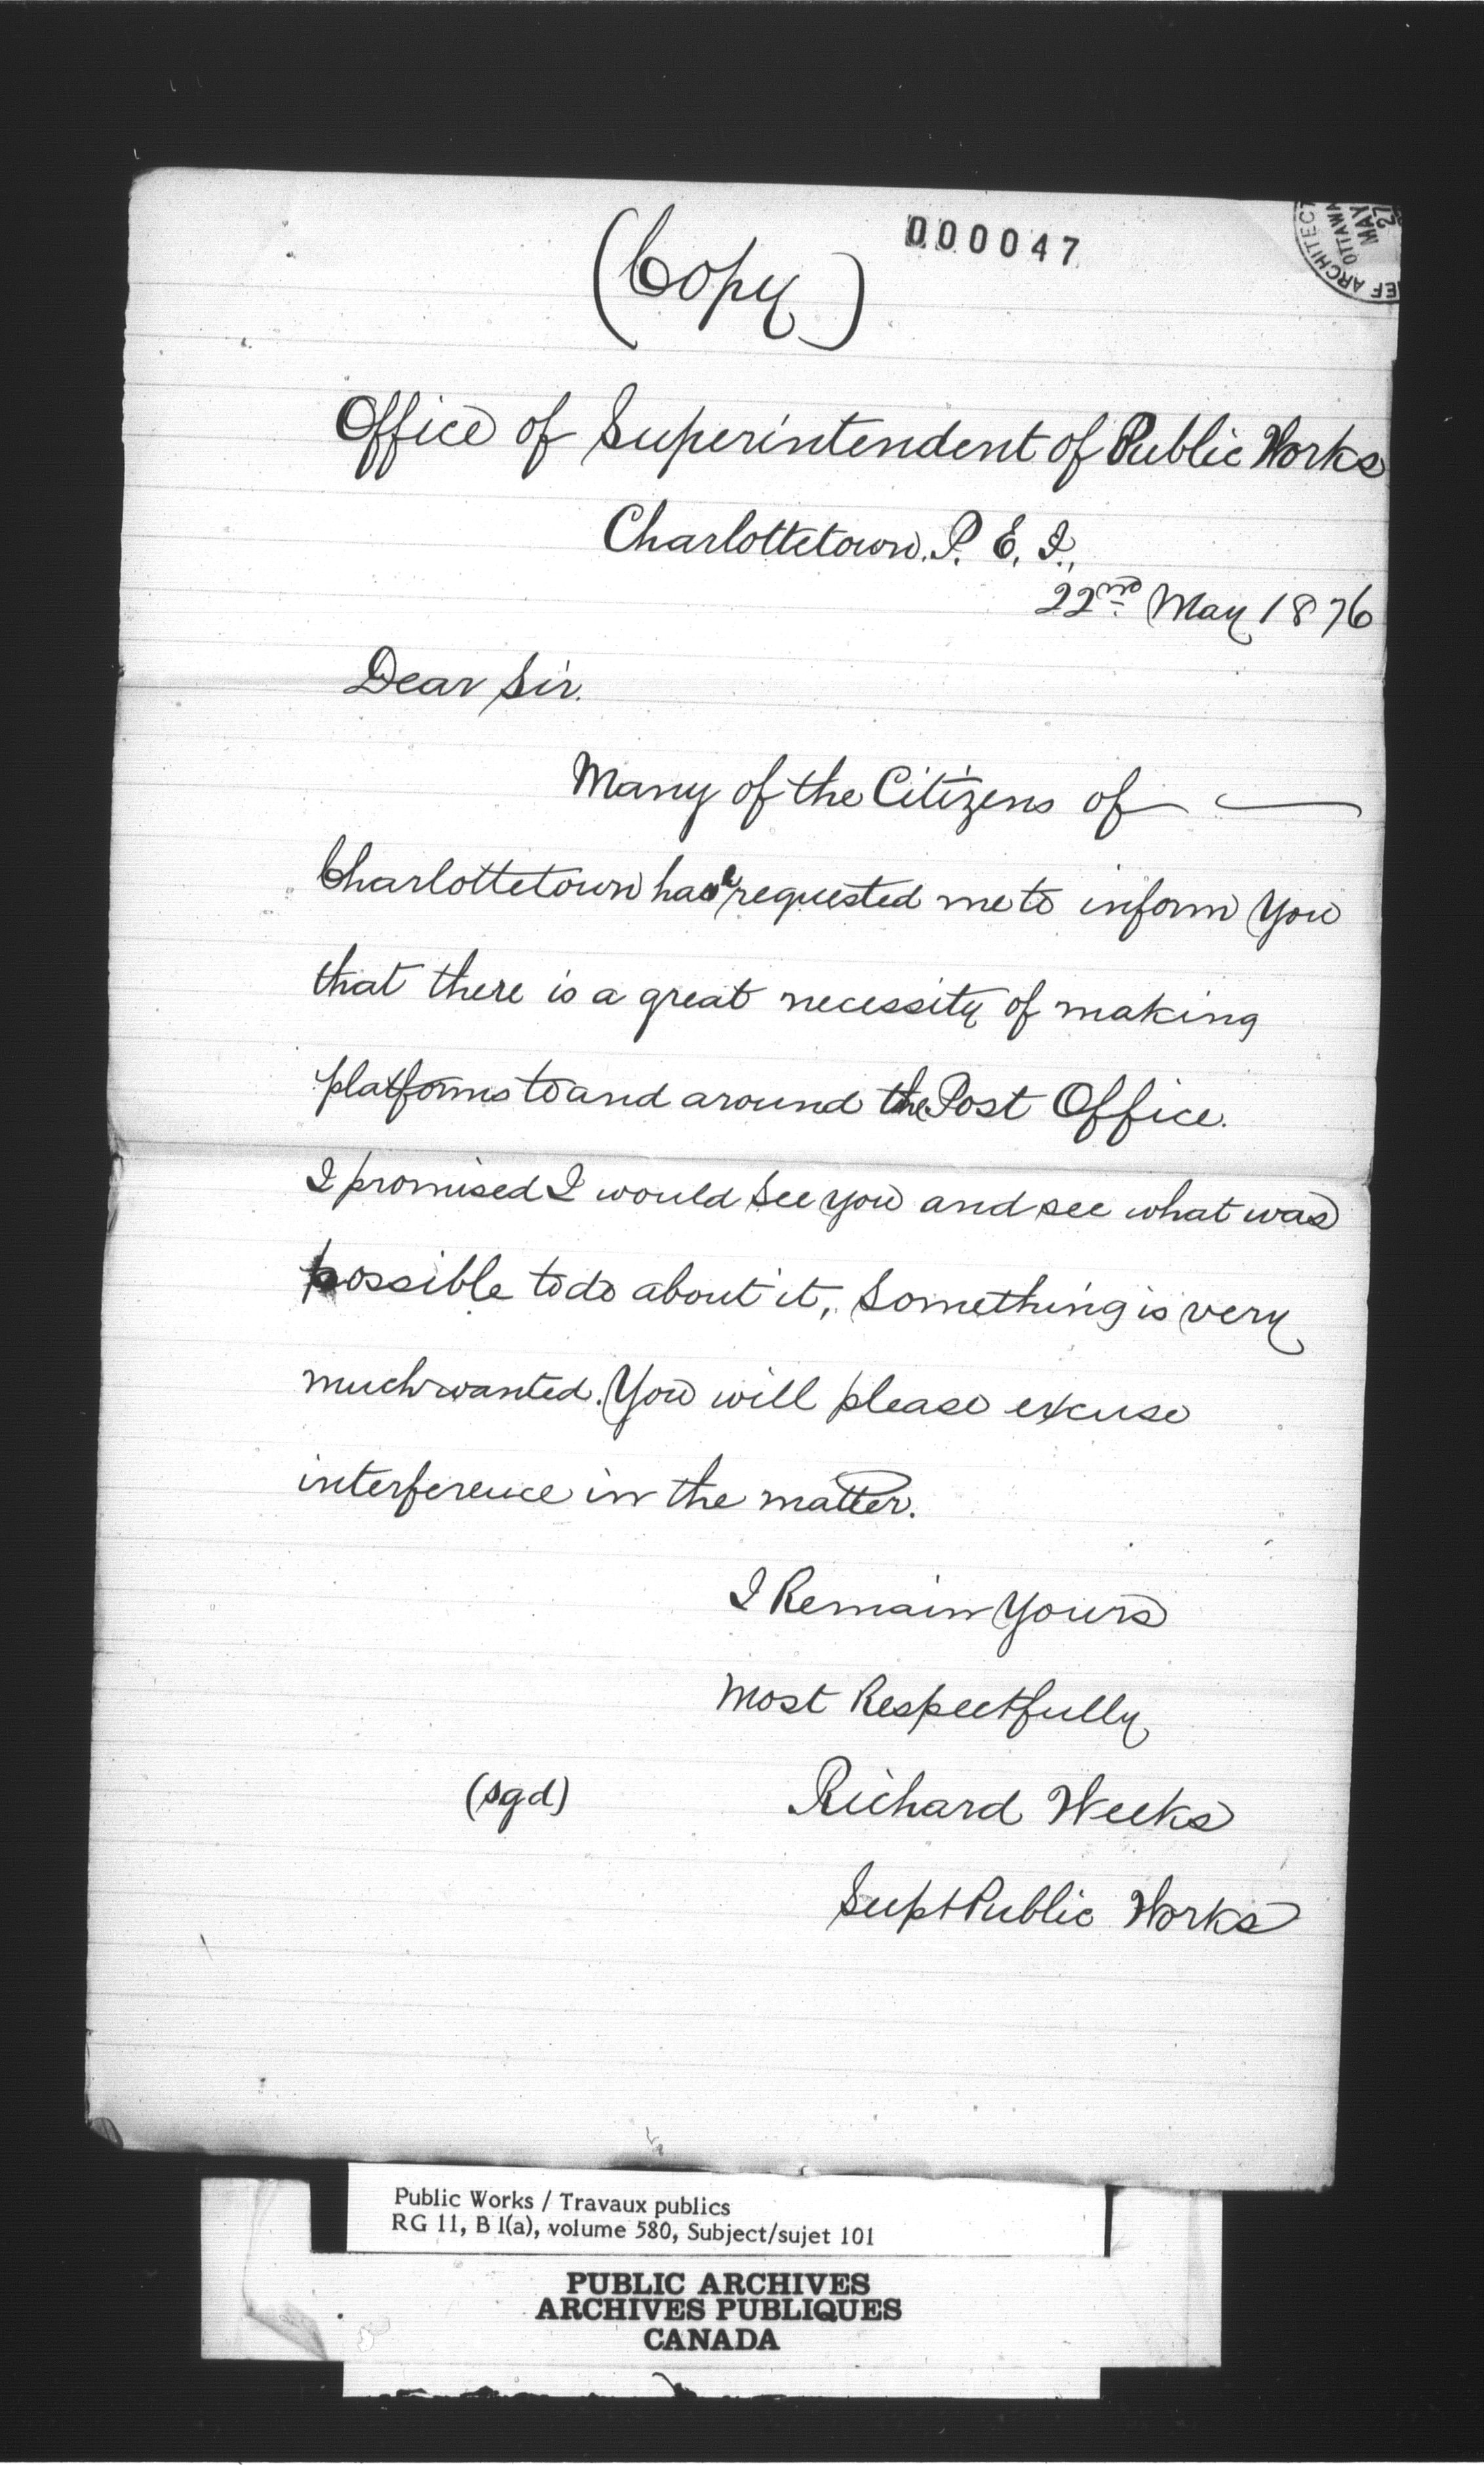 000047
CHIEF ARCHITECT
OTTAWA
MAY
27
(Copy)
Office of Superintendent of Public Works
Charlottetown, P. E. I.,
22nd May 1876
Dear Sir.
Many of the Citizens of
Charlottetown have requested me to inform You
that there is a great necessity of making
platforms to and around the Post Office.
I promised I would See you and see what was
possible to do about it, Something is very
much wanted. You will please excuse
interference in the matter.
I Remain Yours
Most Respectfully
(sgd) Richard Weeks
Supt Public Works
Public Works / Travaux publics
RG 11, B 1(a), volume 580, Subject/sujet 101
PUBLIC ARCHIVES
ARCHIVES PUBLIQUES
CANADA